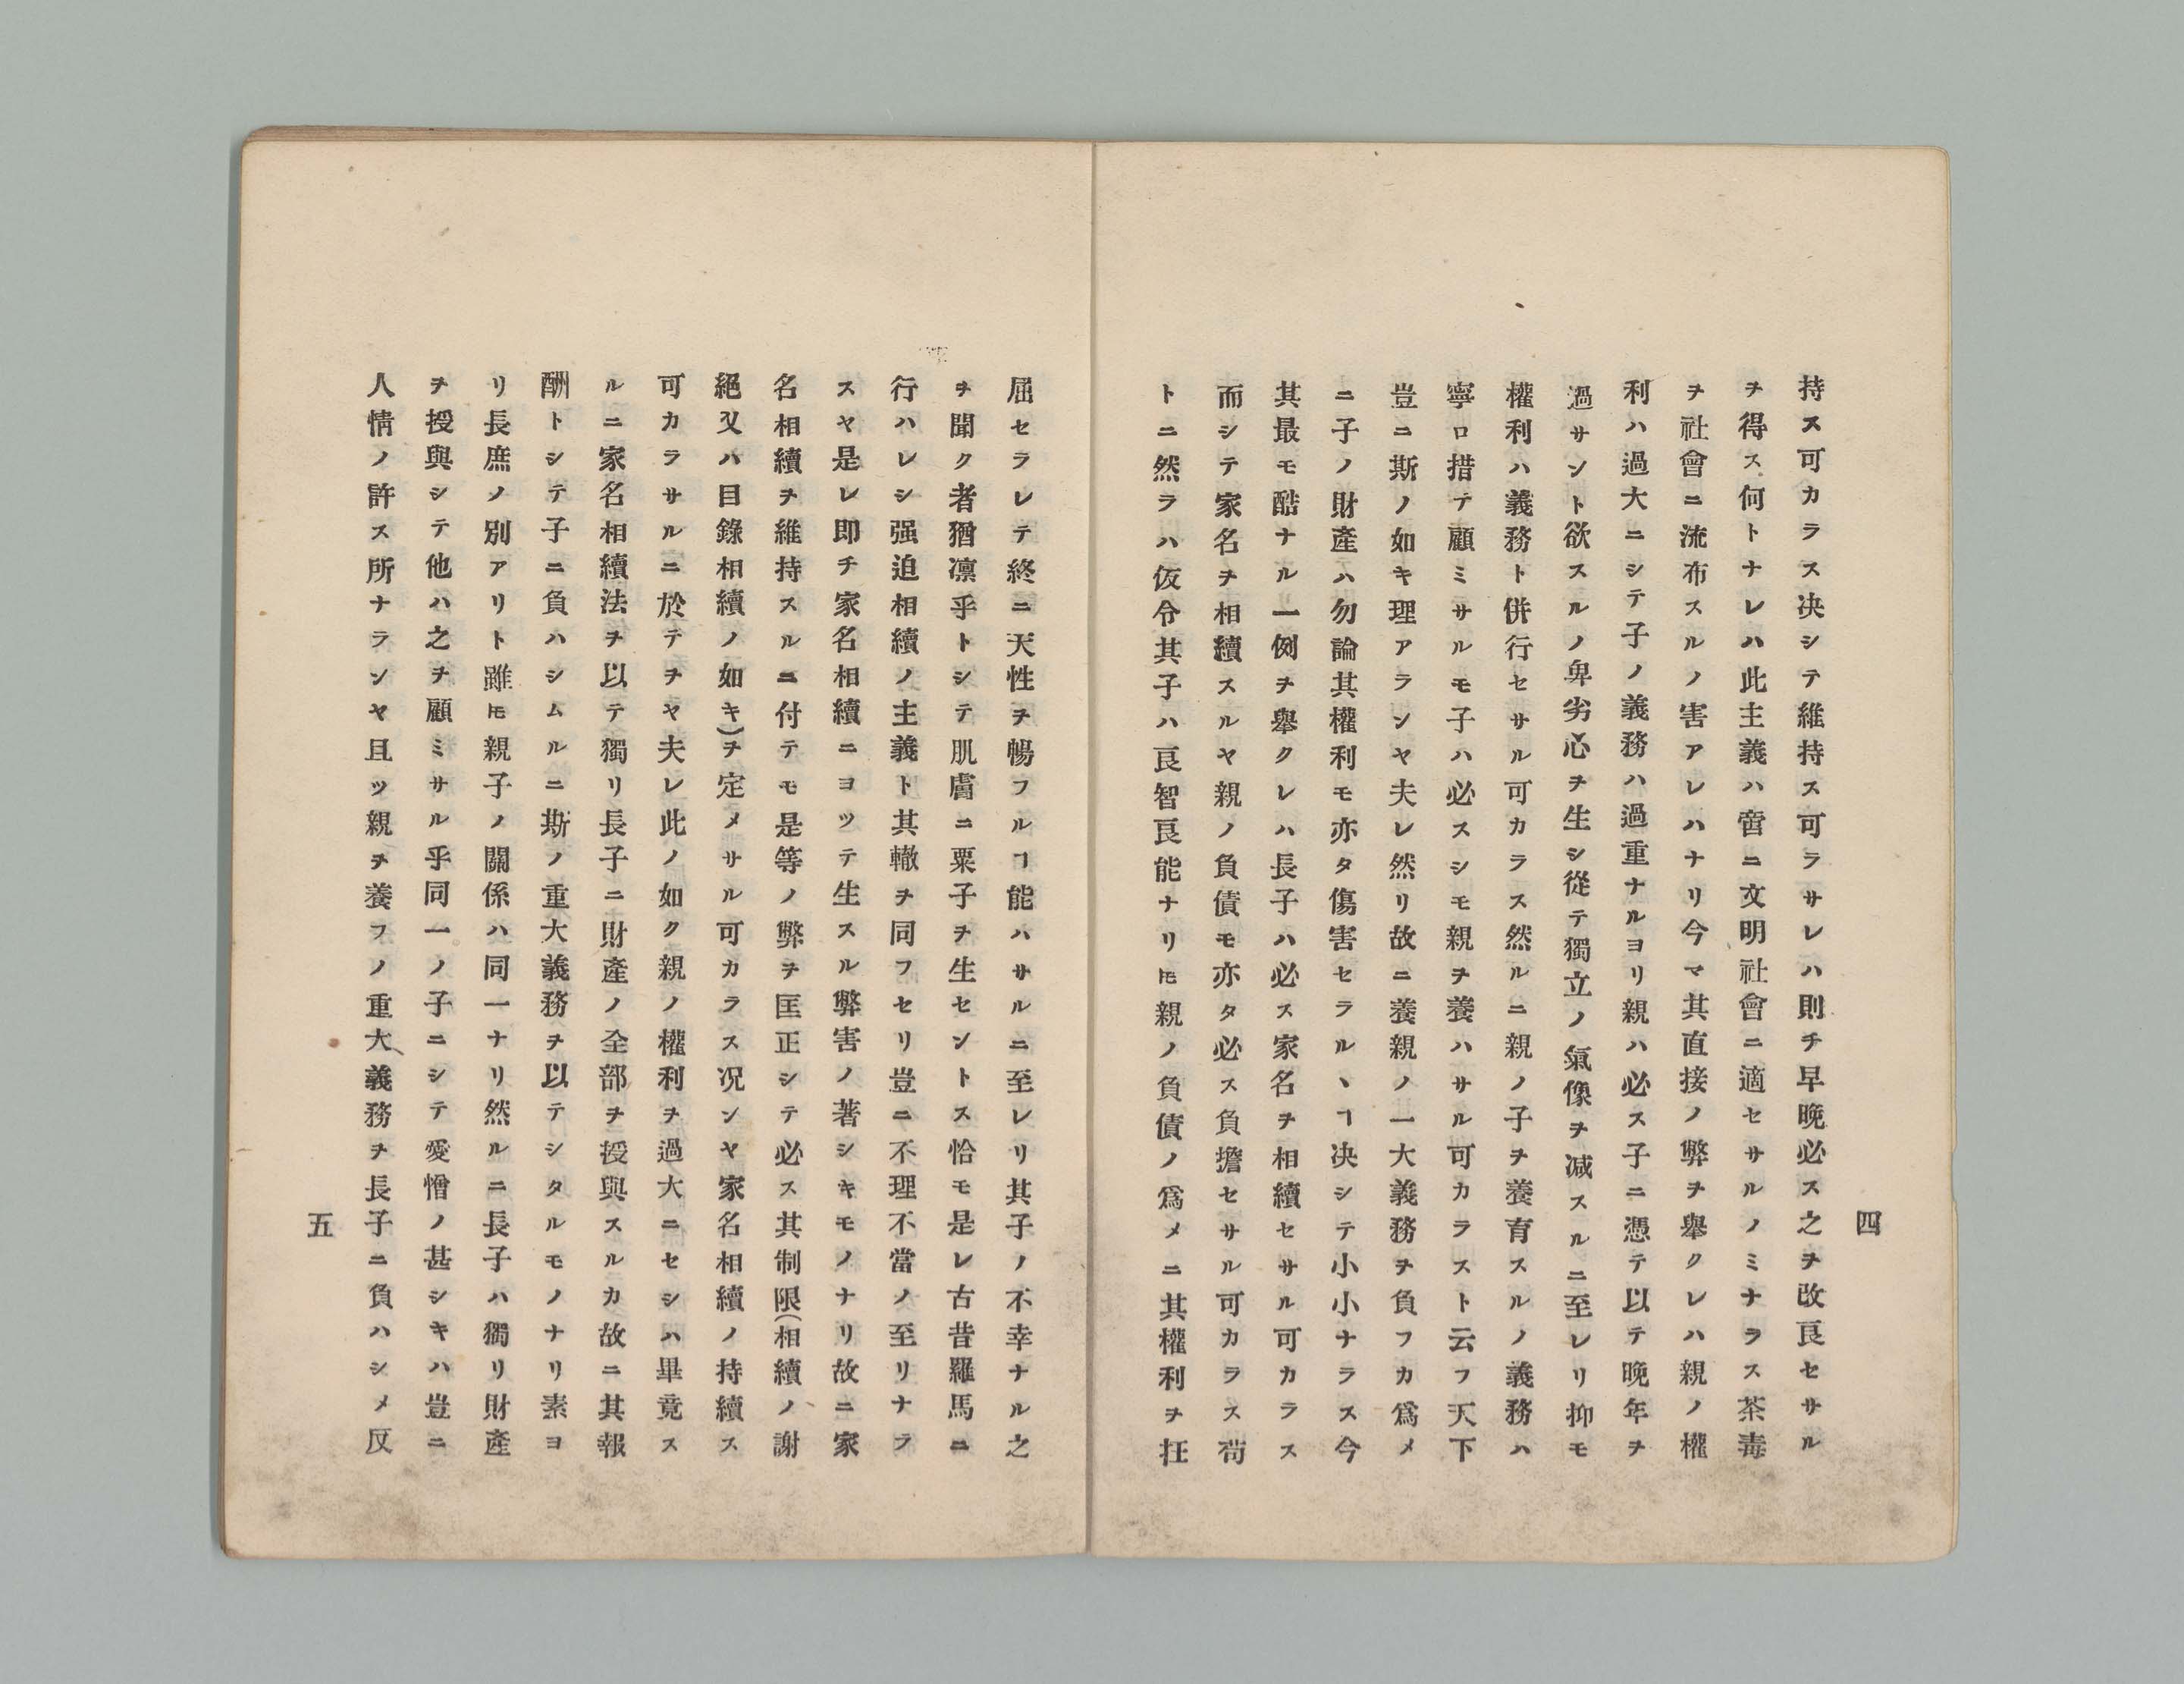 四
持ス可カラス決シテ維持ス可ラサレハ則チ早晩必ス之ヲ改良セサル
ヲ得ス何トナレハ此主義ハ啻ニ文明社會ニ適セサルノミナラス茶毒
ヲ社會ニ流布スルノ害アレハナリ今マ其直接ノ弊ヲ擧クレハ親ノ權
利ハ過大ニシテ子ノ義務ハ過重ナルヨリ親ハ必ス子ニ憑テ以テ晩年ヲ
過サント欲スルノ卑劣心ヲ生シ從テ獨立ノ氣像ヲ減スルニ至レリ抑モ
權利ハ義務ト併行セサル可カラス然ルニ親ノ子ヲ養育スルノ義務ハ
寧ロ措テ顧ミサルモ子ハ必スシモ親ヲ養ハサル可カラスト云フ天下
豈ニ斯ノ如キ理アランヤ夫レ然リ故ニ養親ノ一大義務ヲ負フカ爲メ
ニ子ノ財產ハ勿論其權利モ亦タ傷害セラルヽヿ決シテ小小ナラス今
其最モ酷ナル一例ヲ擧クレハ長子ハ必ス家名ヲ相續セサル可カラス
而シテ家名ヲ相續スルヤ親ノ負債モ亦タ必ス負擔セサル可カラス苟
トニ然ラハ仮令其子ハ良智良能ナリ𪜈親ノ負債ノ爲メニ其權利ヲ抂
屈セラレテ終ニ天性ヲ暢フルヿ能ハサルニ至レリ其子ノ不幸ナル之
ヲ聞ク者猶凛乎トシテ肌膚ニ粟子ヲ生セントス恰モ是レ古昔羅馬ニ
行ハレシ强迫相續ノ主義ト其轍ヲ同フセリ豈ニ不理不當ノ至リナラ
スヤ是レ即チ家名相續ニヨツテ生スル弊害ノ著シキモノナリ故ニ家
名相續ヲ維持スルニ付テモ是等ノ弊ヲ匡正シテ必ス其制限(相續ノ謝
絕又ハ目錄相續ノ如キ)ヲ定メサル可カラス况ンヤ家名相續ノ持續ス
可カラサルニ於テヲヤ夫レ此ノ如ク親ノ權利ヲ過大ニセシハ畢竟ス
ルニ家名相續法ヲ以テ獨リ長子ニ財產ノ全部ヲ授與スルカ故ニ其報
酬トシテ子ニ負ハシムルニ斯ノ重大義務ヲ以テシタルモノナリ素ヨ
リ長庶ノ別アリト雖𪜈親子ノ關係ハ同一ナリ然ルニ長子ハ獨リ財產
ヲ授與シテ他ハ之ヲ顧ミサル乎同一ノ子ニシテ愛憎ノ甚シキハ豈ニ
人情ノ許ス所ナランヤ且ツ親ヲ養フノ重大義務ヲ長子ニ負ハシメ反
五